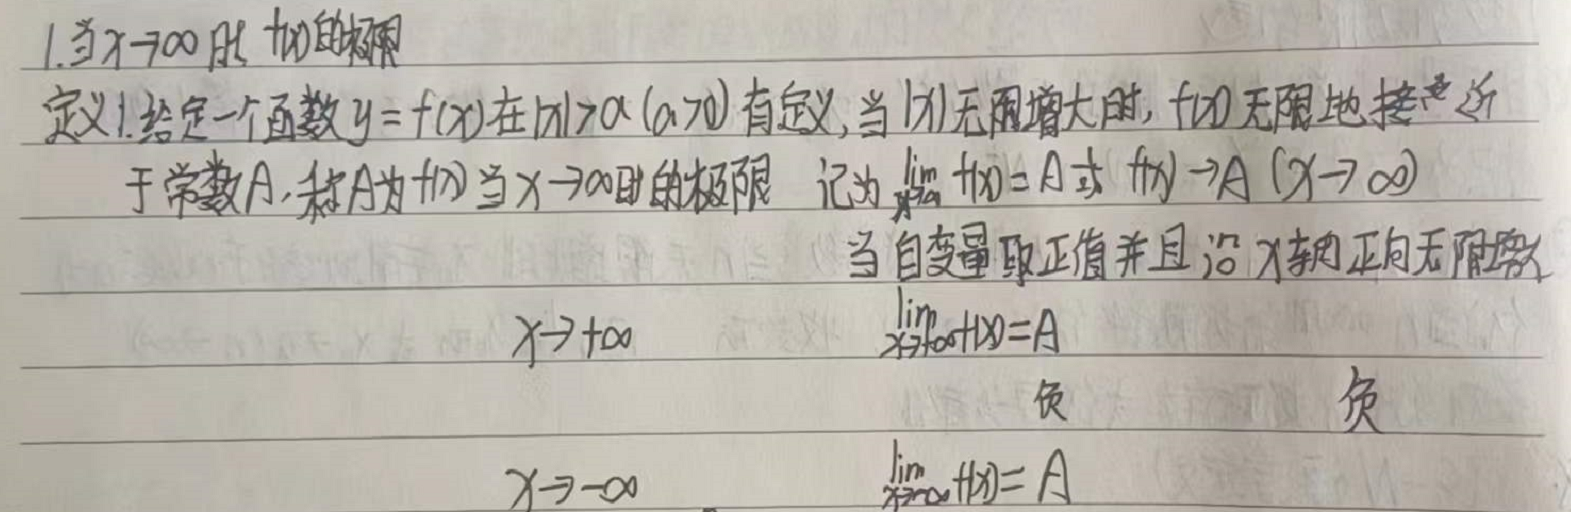 1.当x→∞时 f(x)的极限
定义1.给定一个函数y=f(x)在|x|>a(a>0)有定义,当|x|无限增大时,f(x)无限地接近
于常数A,称A为f(x)当x→∞时的极限 记为 lim x→∞ f(x)=A或 f(x)→A (x→∞)
当自变量取正值并且沿x轴正向无限增大
x→+∞ lim x→+∞ f(x)=A
负 负
x→-∞ lim x→-∞ f(x)=A